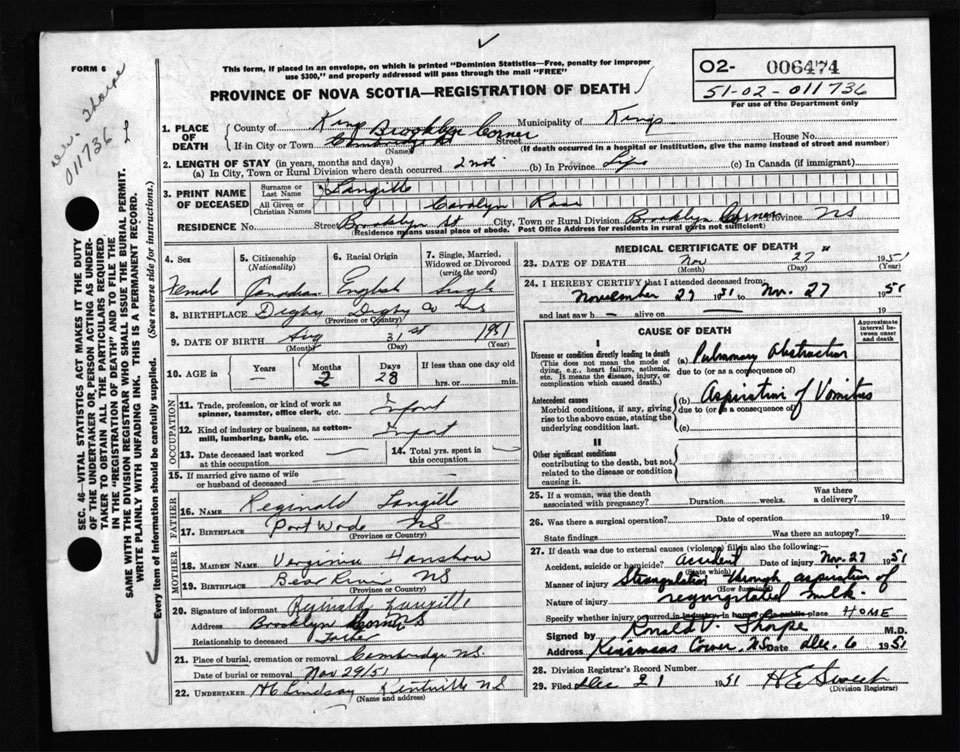 FORM 6
This form, if placed in an envelope, on which is printed "Dominion Statistics—Free, penalty for improper
use $300," and properly addressed will pass through the mail "FREE"
PROVINCE OF NOVA SCOTIA—REGISTRATION OF DEATH
O2- 006474
51-02-011736
For use of the Department only
Dr. Tharpe
011736
SEC. 46—VITAL STATISTICS ACT MAKES IT THE DUTY
OF THE UNDERTAKER OR PERSON ACTING AS UNDER-
TAKER TO OBTAIN ALL THE PARTICULARS REQUIRED
IN THE "REGISTRATION OF DEATH" AND TO FILE THE
SAME WITH THE DIVISION REGISTRAR WHO SHALL ISSUE THE BURIAL PERMIT.
WRITE PLAINLY WITH UNFADING INK. THIS IS A PERMANENT RECORD.
Every item of information should be carefully supplied. (See reverse side for instructions.)
1. PLACE OF DEATH
County of Kings Municipality of Kings
Brooklyn Corner
If in City or Town Street House No.
(Name) (If death occurred in a hospital or institution, give the name instead of street and number)
2. LENGTH OF STAY (in years, months and days)
(a) In City, Town or Rural Division where death occurred (b) In Province Life (c) In Canada (if immigrant)
3. PRINT NAME OF DECEASED
Surname or Last Name Langille
All Given or Christian Names Carolyn Rose
RESIDENCE No. Street Brooklyn St City, Town or Rural Division Brooklyn Corner Province NS
(Residence means usual place of abode. Post Office Address for residents in rural parts not sufficient)
4. Sex Female
5. Citizenship (Nationality) Canadian
6. Racial Origin English
7. Single, Married, Widowed or Divorced (write the word) Single
8. BIRTHPLACE Digby Digby Co NS
(Province or Country)
9. DATE OF BIRTH Aug 31st 1951
(Month) (Day) (Year)
10. AGE in Years — Months 2 Days 28 If less than one day
hrs. or min.
OCCUPATION
11. Trade, profession, or kind of work as
spinner, teamster, office clerk, etc. Infant
12. Kind of industry or business, as cotton-
mill, lumbering, bank, etc. Infant
13. Date deceased last worked
at this occupation —
14. Total yrs. spent in
this occupation —
15. If married give name of wife
or husband of deceased —
FATHER
16. NAME Reginald Langille
17. BIRTHPLACE Port Wade NS
(Province or Country)
MOTHER
18. MAIDEN NAME Verginia Hanshaw
19. BIRTHPLACE Bear River NS
(Province or Country)
20. Signature of informant Reginald Langille
Address Brooklyn Corner NS
Relationship to deceased Father
21. Place of burial, cremation or removal Cambridge NS.
Date of burial or removal Nov 29/51
22. UNDERTAKER Lindsay Kentville NS
(Name and address)
MEDICAL CERTIFICATE OF DEATH
23. DATE OF DEATH Nov 27 1951
(Month) (Day) (Year)
24. I HEREBY CERTIFY that I attended deceased from:
November 27 1951 to Nov. 27 1951
and last saw h — alive on — 19
CAUSE OF DEATH
Approximate interval between onset and death
I
Disease or condition directly leading to death
(This does not mean the mode of
dying, e.g., heart failure, asthenia,
etc. It means the disease, injury, or
complication which caused death.)
(a) Pulmonary Obstruction
due to (or as a consequence of)
Antecedent causes
Morbid conditions, if any, giving
rise to the above cause, stating the
underlying condition last.
(b) Aspiration of Vomitus
due to (or as a consequence of)
(c)
II
Other significant conditions
contributing to the death, but not
related to the disease or condition
causing it.
25. If a woman, was the death
associated with pregnancy? Duration weeks. Was there
a delivery?
26. Was there a surgical operation? Date of operation 19
State findings Was there an autopsy?
27. If death was due to external causes (violence) fill in also the following:
Accident, suicide or homicide? Accident Date of injury Nov. 27 1951
(State which)
Manner of injury Strangulation through aspiration of
(How sustained)
Nature of injury regurgitated milk.
Specify whether injury occurred in industry, in home or in public place HOME
Signed by Ronald V. Tharpe M.D.
Address Kinsmans Corner. NS Date Dec. 6 1951
28. Division Registrar's Record Number
29. Filed Dec 21 1951 H E Sweet
(Division Registrar)